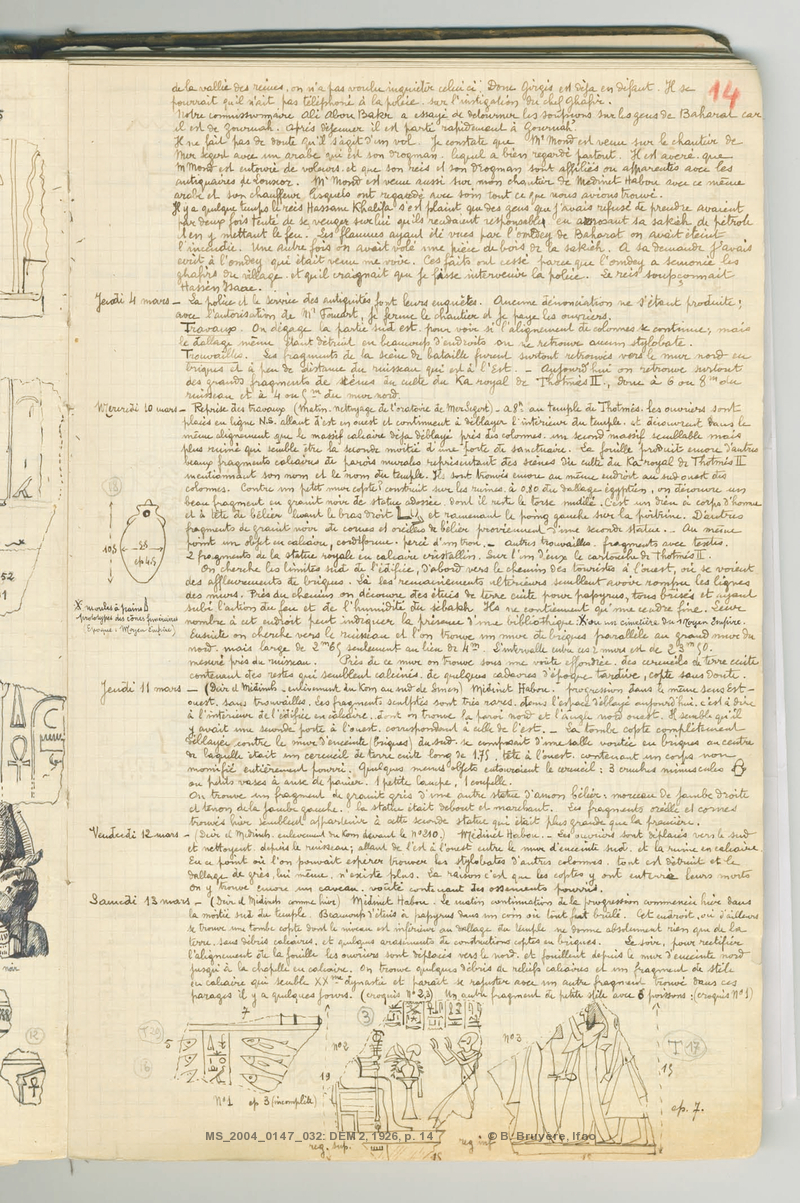 14
de la vallée des reines, on n'a pas voulu inquiéter celui ci. Donc Girgis est déjà en défaut. Il se
pourrait qu'il n'ait pas téléphoné à la police, sur l'instigation du chef Ghafir.
Notre commissionnaire Ali Abou Bakr a essayé de détourner les soupçons sur les gens de Baharat car
il est de Gournah. Après déjeuner il est parti rapidement à Gournah.
Il ne fait pas de doute qu'il s'agit d'un vol. Je constate que Mr Mond est venu sur le chantier de
Mer Seger avec un arabe qui est son drogman, lequel a bien regardé partout. Il est avéré que
Mr Mond est entouré de voleurs, et que son reis et son drogman sont affiliés ou apparentés avec les
antiquaires de Louxor. Mr Mond est venu aussi sur mon chantier de Médinet Habou avec ce même
arabe et son chauffeur, lesquels ont regardé avec soin tout ce que nous avions trouvé.
Il y a quelque temps le reis Hassane Khalifa s'est plaint que des gens que j'avais refusé de prendre avaient
par deux fois tenté de se venger sur lui qu'ils rendaient responsable, en arrosant sa sakieh de pétrole
et en y mettant le feu. Les flammes ayant été vues par l'omdey de Baharat on avait éteint
l'incendie. Une autre fois on avait volé une pièce de bois de la sakieh. A sa demande j'avais
écrit à l'omdey qui était venu me voir. Ces faits ont cessé parce que l'omdey a semoncé les
ghafirs du village et qu'il craignait que je fasse intervenir la police. Le reis soupçonnait
Hassen Isaac.
Jeudi 4 mars – La police et le service des antiquités font leurs enquêtes. Aucune dénonciation ne s'étant produite,
avec l'autorisation de Mr Foucart, je ferme le chantier et je paye les ouvriers.
Travaux. On dégage la partie sud est pour voir si l'alignement de colonnes se continue, mais
le dallage même étant détruit en beaucoup d'endroits on ne retrouve aucun stylobate.
Trouvailles. Les fragments de la scène de bataille furent surtout retrouvés vers le mur nord en
briques et à peu de distance du ruisseau qui est à l'Est. – Aujourd'hui on retrouve surtout
des grands fragments de scènes du culte du Ka royal de Thotmès II, donc à 6 ou 8m du
ruisseau et à 4 ou 5m du mur nord.
Mercredi 10 mars – Reprise des travaux (matin, nettoyage de l'oratoire de MerSegert) – à 8h au temple de Thotmès. Les ouvriers sont
placés en ligne N.S. allant d'est en ouest et continuent à déblayer l'intérieur du temple, et découvrent dans le
même alignement que le massif calcaire déjà déblayé près des colonnes, un second massif semblable mais
plus ruiné qui semble être la seconde moitié d'une porte de sanctuaire. La fouille produit encore d'autres
beaux fragments calcaires de parois murales représentant des scènes du culte du Ka royal de Thotmès II
mentionnant son nom et le nom du temple. Ils sont trouvés encore au même endroit au sud ouest des
colonnes. Contre un petit mur copte construit sur les ruines, à 0,80 du dallage égyptien, on découvre un
beau fragment en granit noir de statue adossée, dont il reste le torse mutilé. C'est un dieu à corps d'homme
et à tête de bélier levant le bras droit et ramenant le poing gauche sur la poitrine. D'autres
fragments de granit noir de cornes et oreilles de bélier proviennent d'une seconde statue. – Au même
point un objet en calcaire, cordiforme, percé d'un trou. – autres trouvailles. fragments avec textes.
2 fragments de la statue royale en calcaire cristallin. Sur l'un d'eux le cartouche de Thotmès II.
On cherche les limites sud de l'édifice, d'abord vers le chemin des touristes à l'ouest, où se voient
des affleurements de briques. Là les remaniements ultérieurs semblent avoir rompu les lignes
des murs. Près du chemin on découvre des étuis de terre cuite pour papyrus, tous brisés et ayant
subi l'action du feu et de l'humidité du sebakh. Ils ne contiennent qu'une cendre fine. Leur
nombre à cet endroit peut indiquer la présence d'une bibliothèque. X ou un cimetière du Moyen Empire.
Ensuite on cherche vers le ruisseau et l'on trouve un mur de briques parallèle au grand mur du
nord mais large de 2m65 seulement au lieu de 4m. L'intervalle entre ces 2 murs est de 23m50.
mesuré près du ruisseau. Près de ce mur on trouve sous une voûte effondrée, des cercueils de terre cuite
contenant des restes qui semblent calcinés, de quelques cadavres d'époque tardive, copte sans doute.
X moules à pains
prototypes des cônes funéraires
(Epoque: Moyen Empire)
Jeudi 11 mars – (Deir el Médineh, enlèvement du Kom au sud de Simon) Médinet Habou. progression dans le même sens Est –
ouest, sans trouvailles. Les fragments sculptés sont très rares, dans l'espace déblayé aujourd'hui, c'est à dire
à l'intérieur de l'édifice en calcaire, dont on trouve la paroi nord et l'angle nord ouest. Il semble qu'il
y avait une seconde porte à l'ouest, correspondant à celle de l'est. – La tombe copte complètement
déblayée contre le mur d'enceinte (briques) du sud, se composait d'une salle voûtée en briques au centre
de laquelle était un cercueil de terre cuite long de 1,75, tête à l'ouest, contenant un corps non
momifié entièrement pourri. Quelques menus objets entouraient le cercueil; 3 cruches minuscules
ou petits vases à anse de panier, 1 petite lampe, 1 coupelle.
On trouve un fragment de granit gris d'une autre statue d'amon bélier: morceau de jambe droite
et tenon de la jambe gauche. la statue était debout et marchant. Les fragments oreille et cornes
trouvés hier semblent appartenir à cette seconde statue qui était plus grande que la première.
Vendredi 12 mars – (Deir el Médineh, enlèvement du Kom devant le No 210.) Médinet Habou. – Les ouvriers sont déplacés vers le sud
et nettoyent, depuis le ruisseau, allant de l'est à l'ouest entre le mur d'enceinte sud, et la ruine en calcaire.
En ce point où l'on pouvait espérer trouver les stylobates d'autres colonnes, tout est détruit et le
dallage de grès, lui même, n'existe plus. La raison c'est que les coptes y ont enterré leurs morts
on y trouve encore un caveau voûté contenant des ossements pourris.
Samedi 13 mars – (Deir el Médineh comme hier) Médinet Habou. Le matin continuation de la progression commencée hier dans
la moitié sud du temple. Beaucoup d'étuis à papyrus dans un coin où tout fut brûlé. Cet endroit, où d'ailleurs
se trouve une tombe copte dont le niveau est inférieur au dallage du temple ne donne absolument rien que de la
terre, sans débris calcaires, et quelques arasements de constructions coptes en briques. Le soir, pour rectifier
l'alignement de la fouille les ouvriers sont déplacés vers le nord, et fouillent depuis le mur d'enceinte nord
jusqu'à la chapelle en calcaire. On trouve quelques débris de reliefs calcaires et un fragment de stèle
en calcaire qui semble XXme dynastie et paraît se rajuster avec un autre fragment trouvé dans ces
parages il y a quelques jours. (croquis No 2,3) Un autre fragment de petite stèle avec 6 poissons: (croquis No 1)
13
105
85
ep 45
noir
12
7
5
No 1 ep 3 (incomplète)
16
3
No 2
19
reg. sup.
reg inf
No 3
T 17
15
ep. 7.
MS_2004_0147_032: DEM 2, 1926, p. 14 © B. Bruyère, Ifao